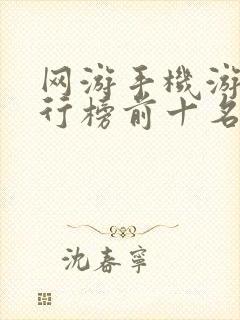 网游手機游
行榜前十名
沈春寧